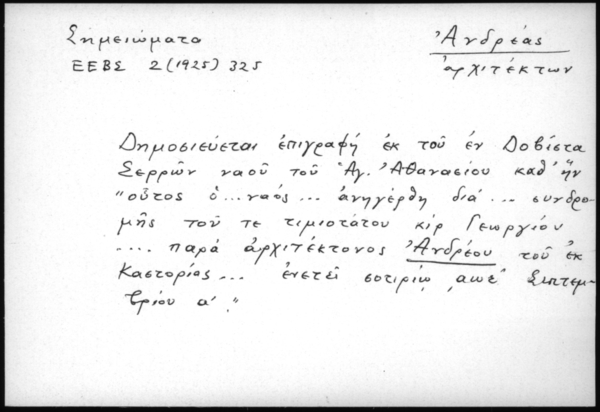 Σημειώματα
ΕΕΒΣ 2 (1925) 325
Ἀνδρέας
ἀρχιτέκτων
Δημοσιεύεται ἐπιγραφή ἐκ τοῦ ἐν Δοβίστα
Σερρῶν ναοῦ τοῦ Ἁγ. Ἀθανασίου καθ' ἥν
"οὗτος ὁ...ναός... ἀνηγέρθη διά... συνδρο-
μῆς τοῦ τε τιμιοτάτου κὶρ Γεωργίου
.... παρά ἀρχιτέκτονος Ἀνδρέου τοῦ ἐκ
Καστορίας... ἐνετεῖ σοτιρίῳ ͵αωε΄ Σεπτεμ-
βρίου α΄."